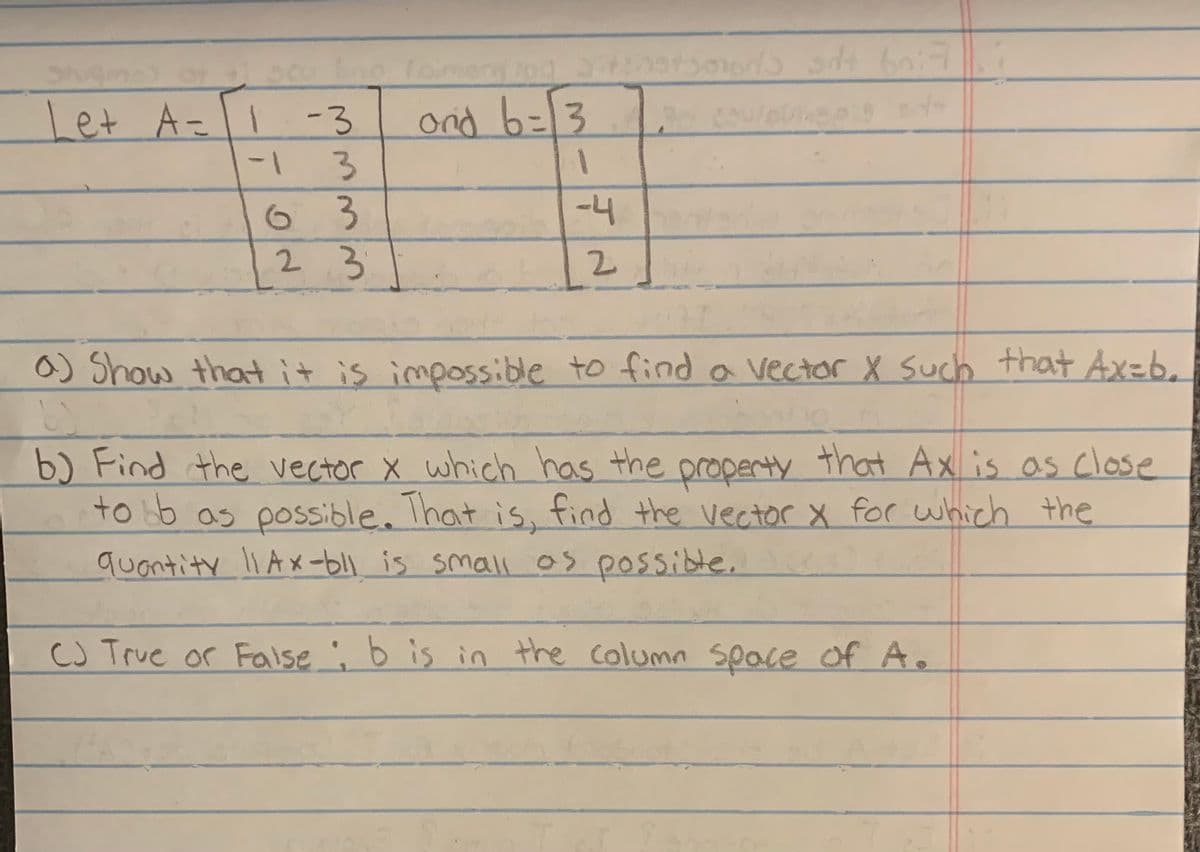 Let A= [1 -3] and b= [3].
[-1 3] [1]
[6 3] [-4]
[2 3] [2]
a) Show that it is impossible to find a vector x such that Ax=b.
b) Find the vector x which has the property that Ax is as close
to b as possible. That is, find the vector x for which the
quantity ||Ax-b|| is small as possible.
c) True or False ; b is in the column space of A.